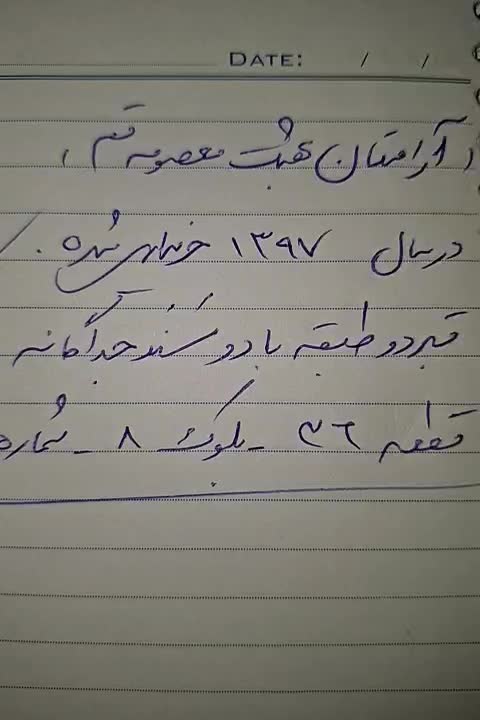 DATE: / /
( آرامستان بهشت معصومه قم )
در سال ۱۳۹۷ خریداری شده .
قبر دو طبقه با دو سند جداگانه
قطعه ۳۶ - بلوک ۸ - شماره